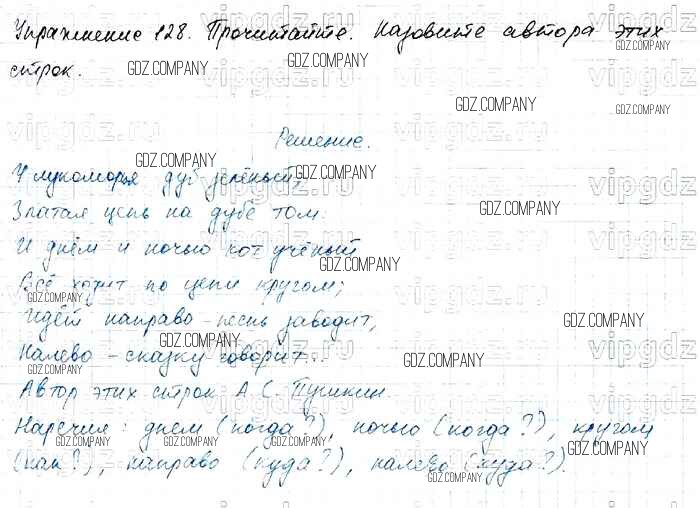 Упражнение 128. Прочитайте. Назовите автора этих
строк.
Решение.
У лукоморья дуб зелёный;
Златая цепь на дубе том:
И днём и ночью кот учёный
Всё ходит по цепи кругом;
Идёт направо - песнь заводит,
Налево - сказку говорит...
Автор этих строк А. С. Пушкин.
Наречия: днем (когда?), ночью (когда?), кругом
(как?), направо (куда?), налево (куда?).